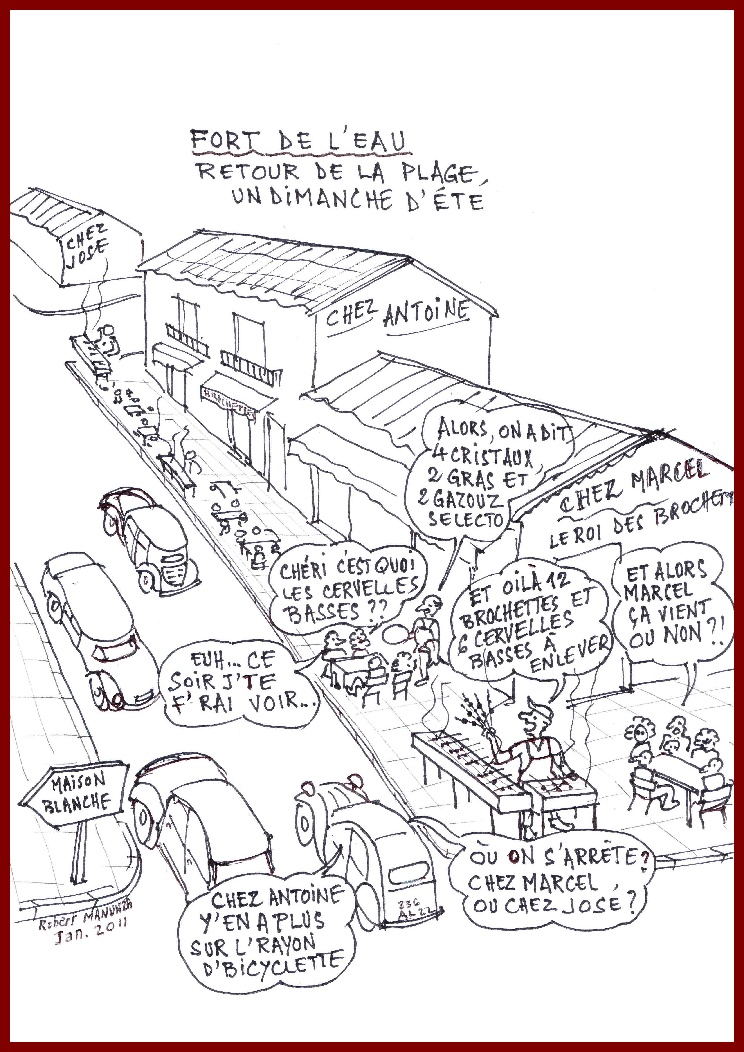 FORT DE L'EAU
RETOUR DE LA PLAGE,
UN DIMANCHE D'ÉTE
CHEZ
JOSE
CHEZ ANTOINE
ALORS, ON A DIT
4 CRISTAUX,
2 GRAS ET
2 GAZOUZ
SELECTO
CHEZ MARCEL
LE ROI DES BROCHETT
CHÉRI C'EST QUOI
LES CERVELLES
BASSES ??
ET OILÀ 12
BROCHETTES ET
6 CERVELLES
BASSES À
ENLEVER
ET ALORS
MARCEL
ÇA VIENT
OU NON ?!
EUH... CE
SOIR J'TE
F'RAI VOIR...
MAISON
BLANCHE
OÙ ON S'ARRÊTE ?
CHEZ MARCEL
OU CHEZ JOSÉ ?
CHEZ ANTOINE
Y'EN A PLUS
SUR L'RAYON
D'BICYCLETTE
236
Robert
Jan. 2011